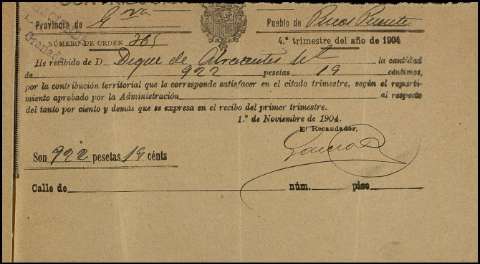 Provincia de Gra Pueblo de Pinos Puente
NÚMERO DE ORDEN 365 4.º trimestre del año de 1904
He recibido de D. Duque de Abrantes la cantidad
de 922 pesetas 19 céntimos,
por la contribución territorial que le corresponde satisfacer en el citado trimestre, según el reparti-
miento aprobado por la Administración al respecto
del tanto por ciento y demás que se expresa en el recibo del primer trimestre.
1.º de Noviembre de 1904.
El Recaudador,
Son 922 pesetas 19 cénts
Calle de núm. piso